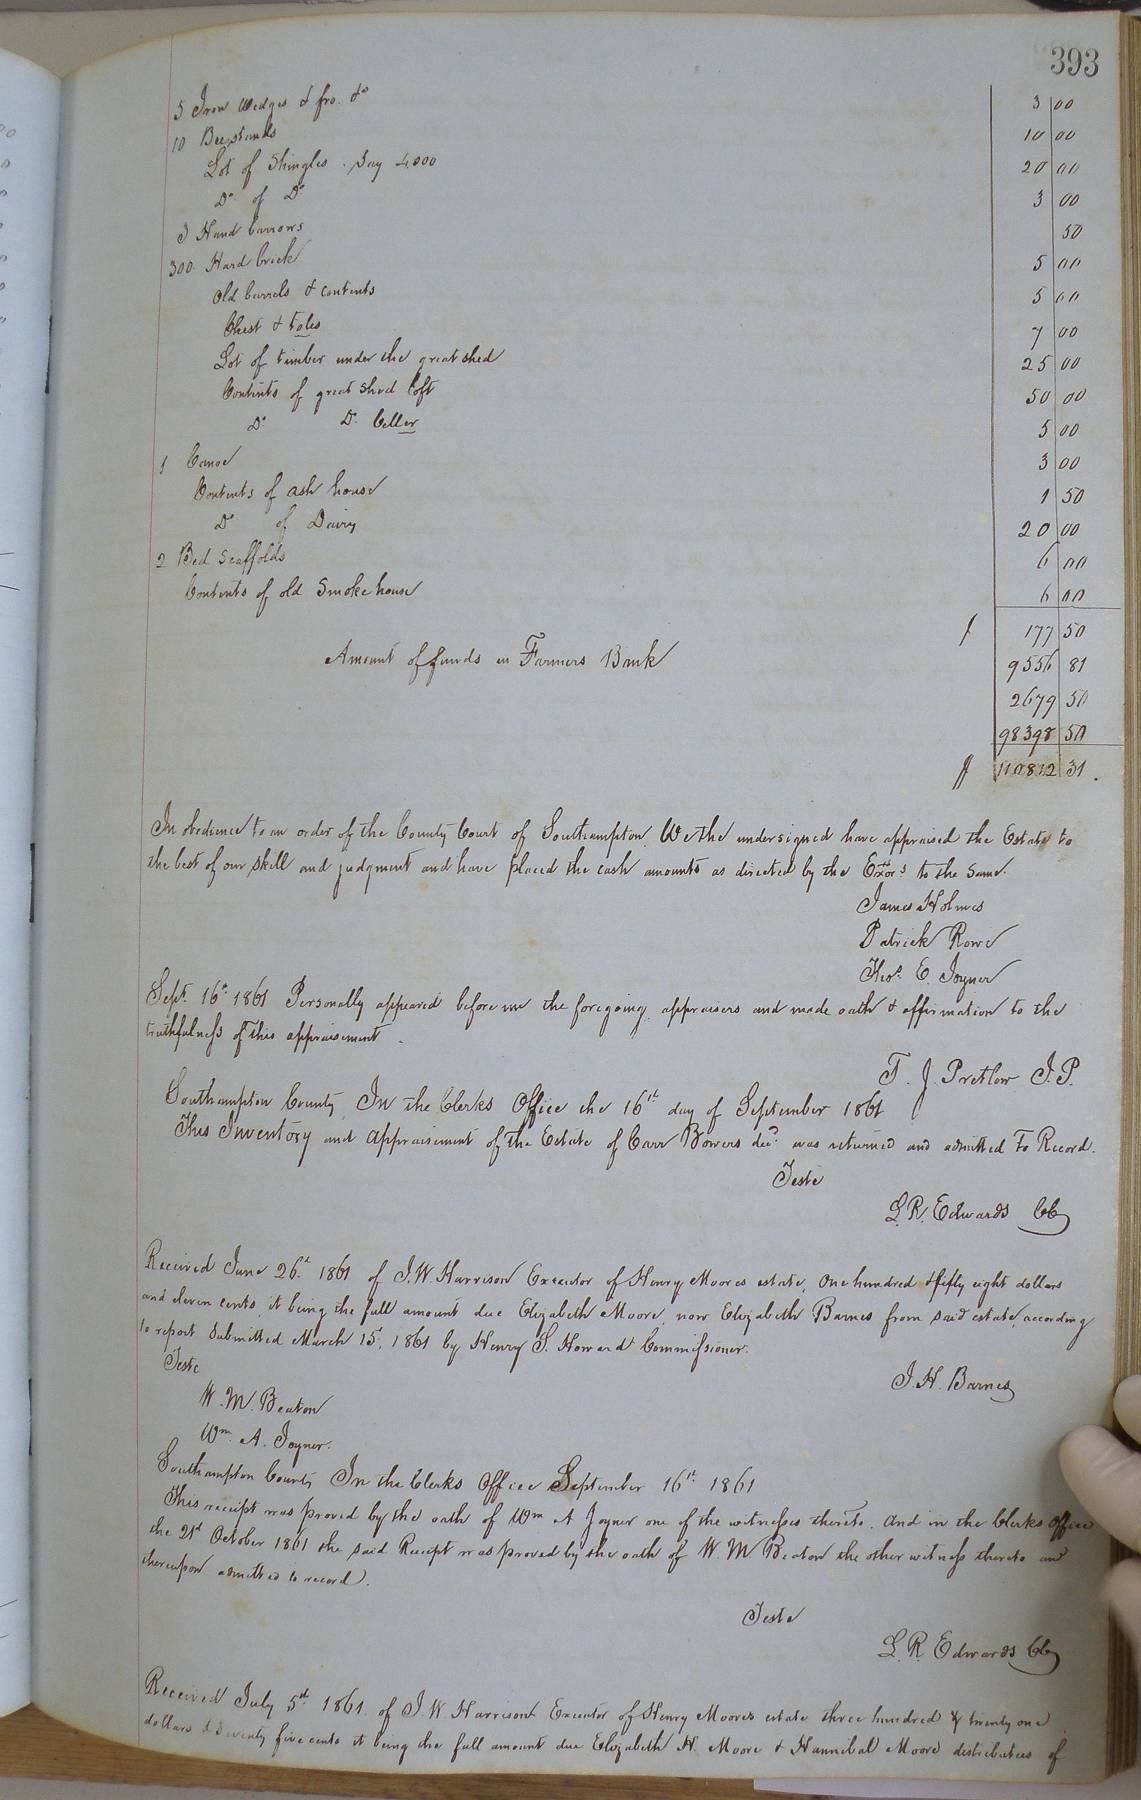 393
5 Iron Wedges & fro. &c 3 00
10 Bee stands 10 00
Lot of Shingles. Say 4000 20 00
Do of Do 3 00
3 Hand barrows 50
300 Hard brick 5 00
Old barrels & contents 5 00
Chest & toles 7 00
Lot of timber under the great shed 25 00
Contents of great Shed loft 50 00
Do Do Celler 5 00
1 Canoe 3 00
Contents of ash house 1 50
Do of Dairy 20 00
2 Bed Scaffolds 6 00
Contents of old Smoke house 6 00
177 50
Amount of funds in Farmers Bank 9556 81
2679 50
98398 50
110812 31.
In obedience to an order of the County Court of Southampton. We the undersigned have appraised the Estate to
the best of our skill and judgment and have placed the cash amounts as directed by the Exors to the same.
James Holmes
Patrick Rowe
Thos. E. Joyner
Sept. 16th 1861 Personally appeared before me the foregoing appraisers and made oath & affirmation to the
truthfulness of this appraisement.
T. J. Pretlow J.P.
Southampton County In the Clerks Office the 16th day of September 1861
This Inventory and appraisement of the Estate of Carr Bowers decd. was returned and admitted to Record.
Teste
L. R. Edwards CC
Received June 26th 1861 of J. W. Harrison Executor of Henry Moores estate, One hundred & fifty eight dollars
and eleven cents, it being the full amount due Elizabeth Moore, now Elizabeth Barnes from said estate, according
to report submitted March 15th, 1861 by Henry S. Howard Commissioner.
Teste J. H. Barnes
W. M. Beaton
Wm. A. Joyner.
Southampton County In the Clerks Office September 16th 1861
This receipt was proved by the oath of Wm A Joyner one of the witnesses thereto. And in the Clerks Office
the 21st October 1861 the said Receipt was proved by the oath of W. M Beaton the other witness thereto and
thereupon admitted to record.
Teste
L. R. Edwards CC
Received July 5th 1861 of J. W Harrison Executor of Henry Moores estate three hundred & twenty one
dollars & seventy five cents it being the full amount due Elizabeth H. Moore & Hannibal Moore distributees of